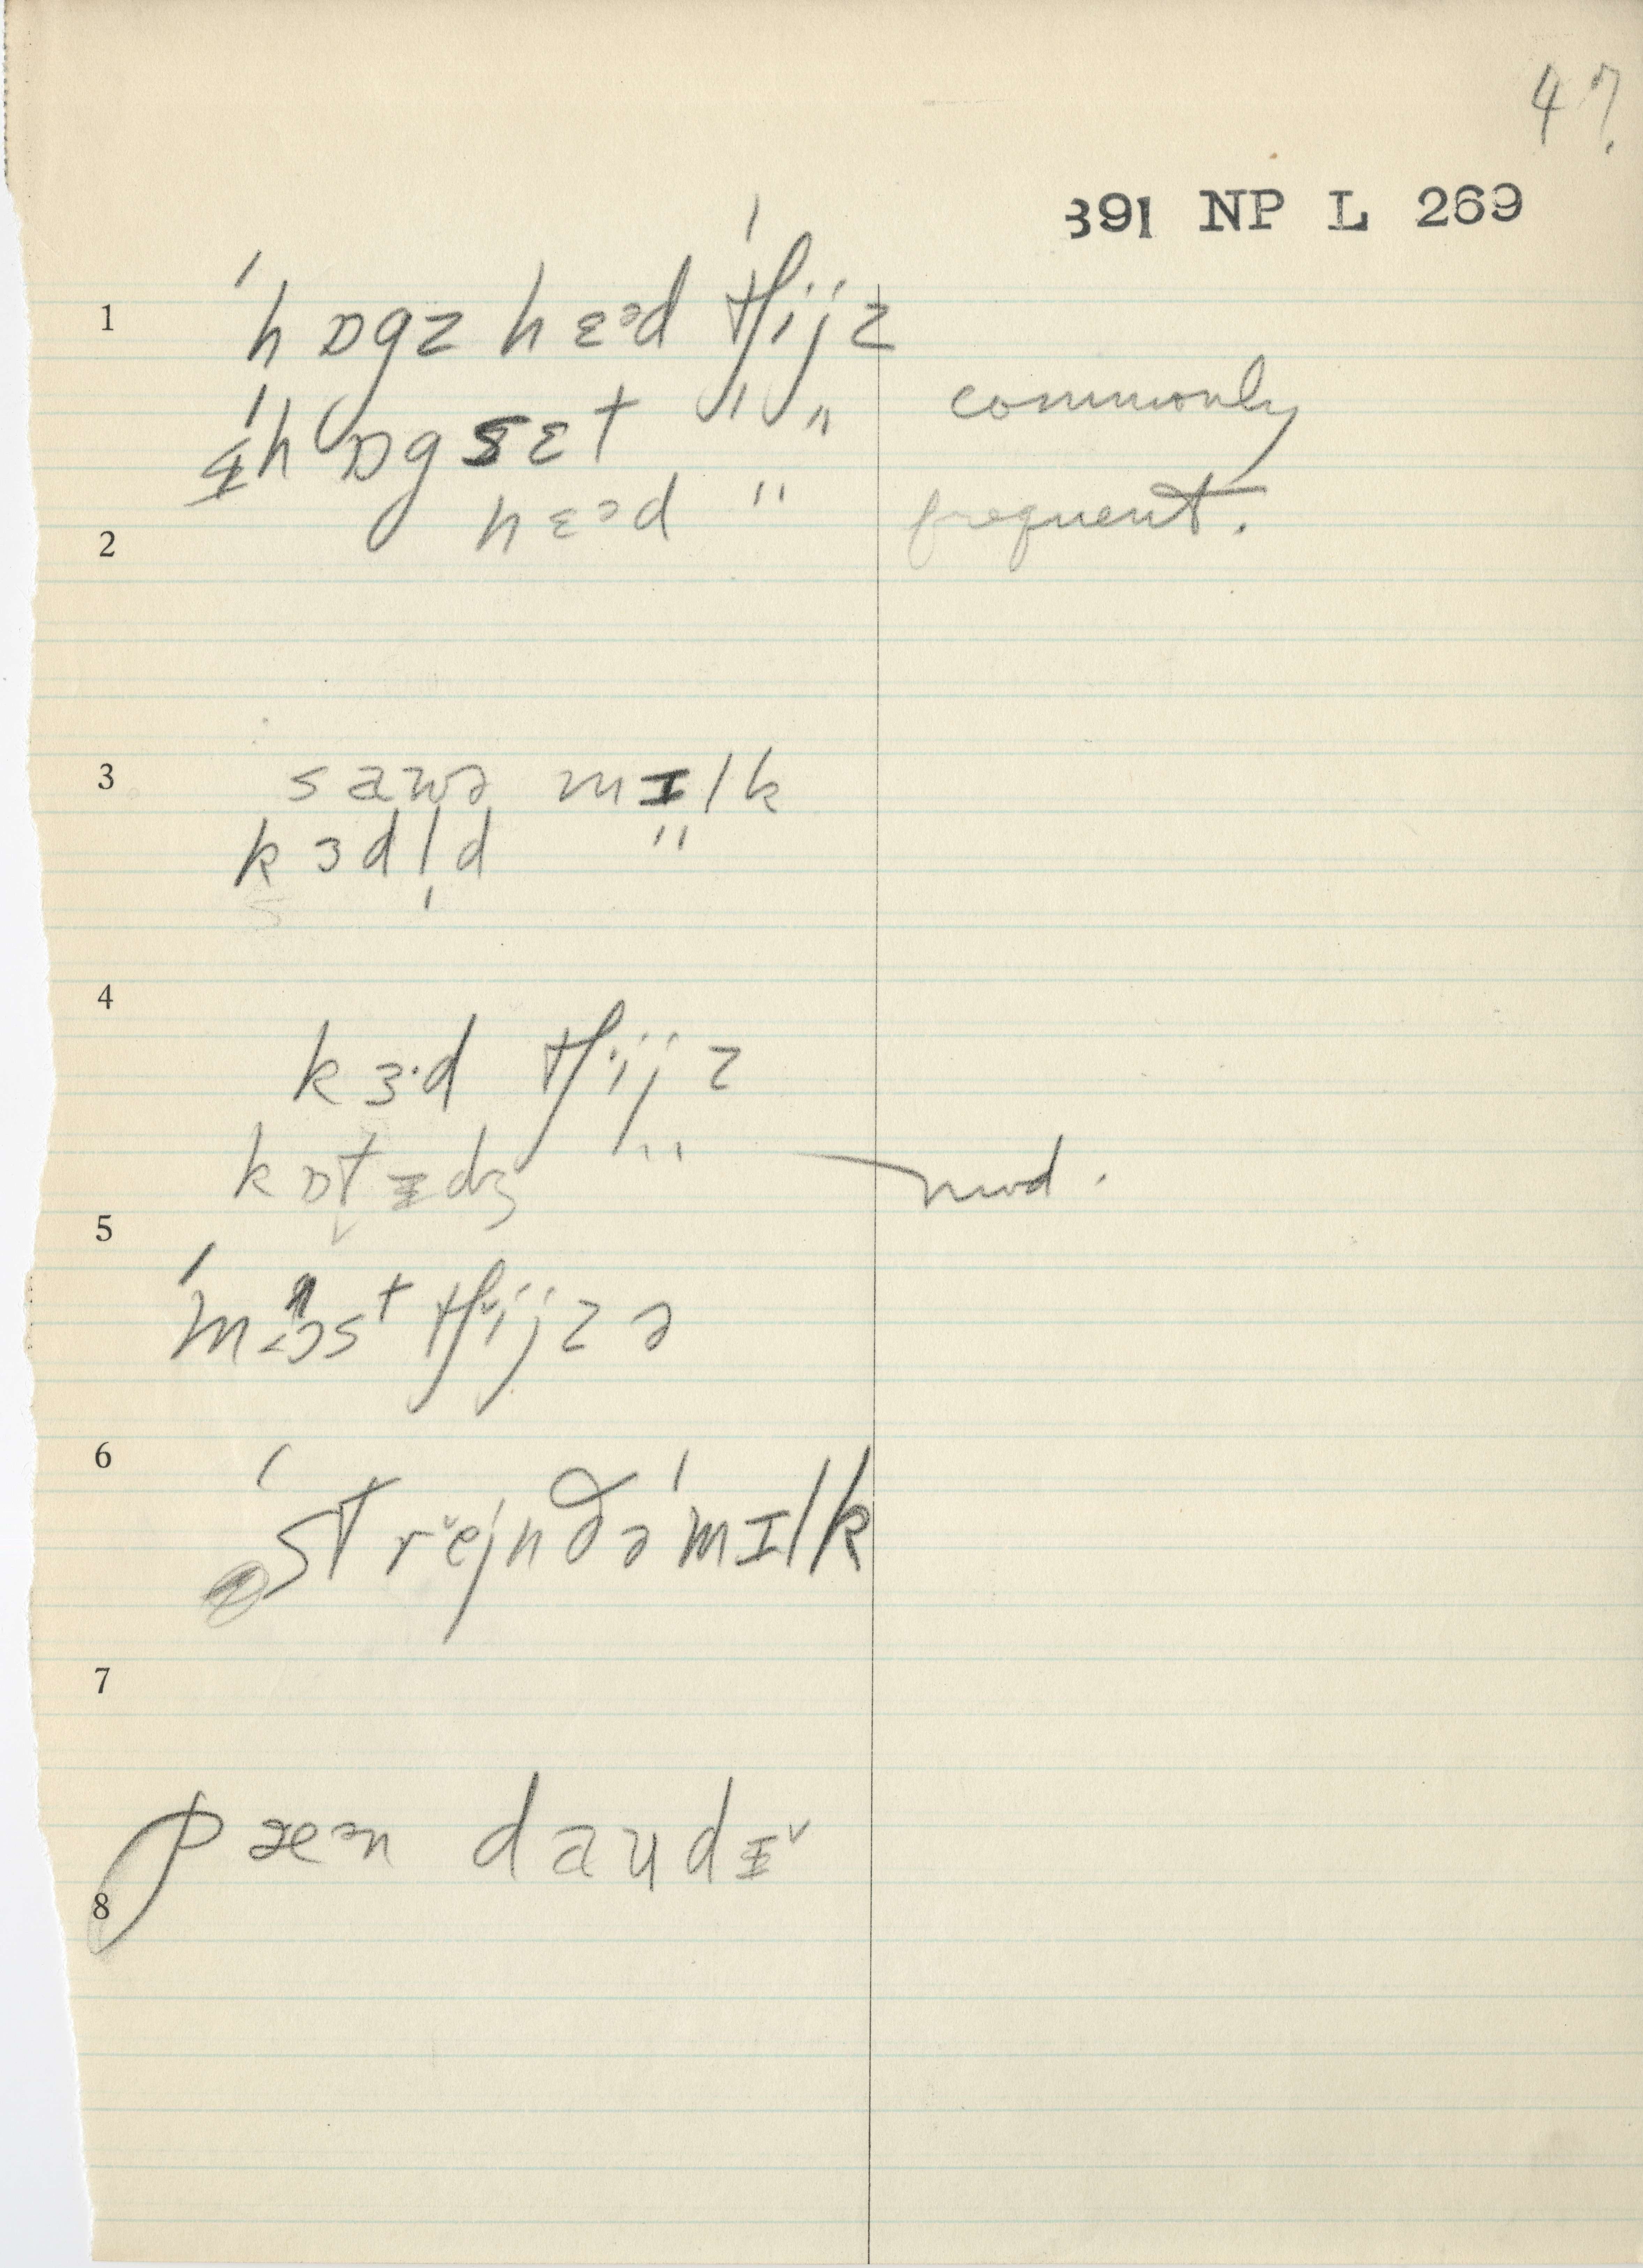 47.
391 NP L 269
1
ˈhɒgz hɛᵊd ˈtʃijz
ˈhɒgsɛt " commonly
hɛᵊd " frequent.
2
3
sawə mɪlk
kɜdl̩d "
4
kɜ·d tʃijz
kɒt̬ɪdʒ " mod.
5
tʃijzə
6
ˈstrĕjndəˈmɪlk
7
pæᵊn daudɪ̌
8